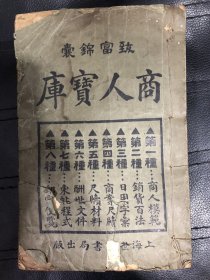 致富錦囊
商人寶庫
▲第一種…商人模範
▲第二種…銷貨百法
▲第三種…日用字彙
▲第四種…商業尺牘
▲第五種…尺牘材料
▲第六種…酬世文件
▲第七種…柬帖程式
▲第八種
上海 書局出版